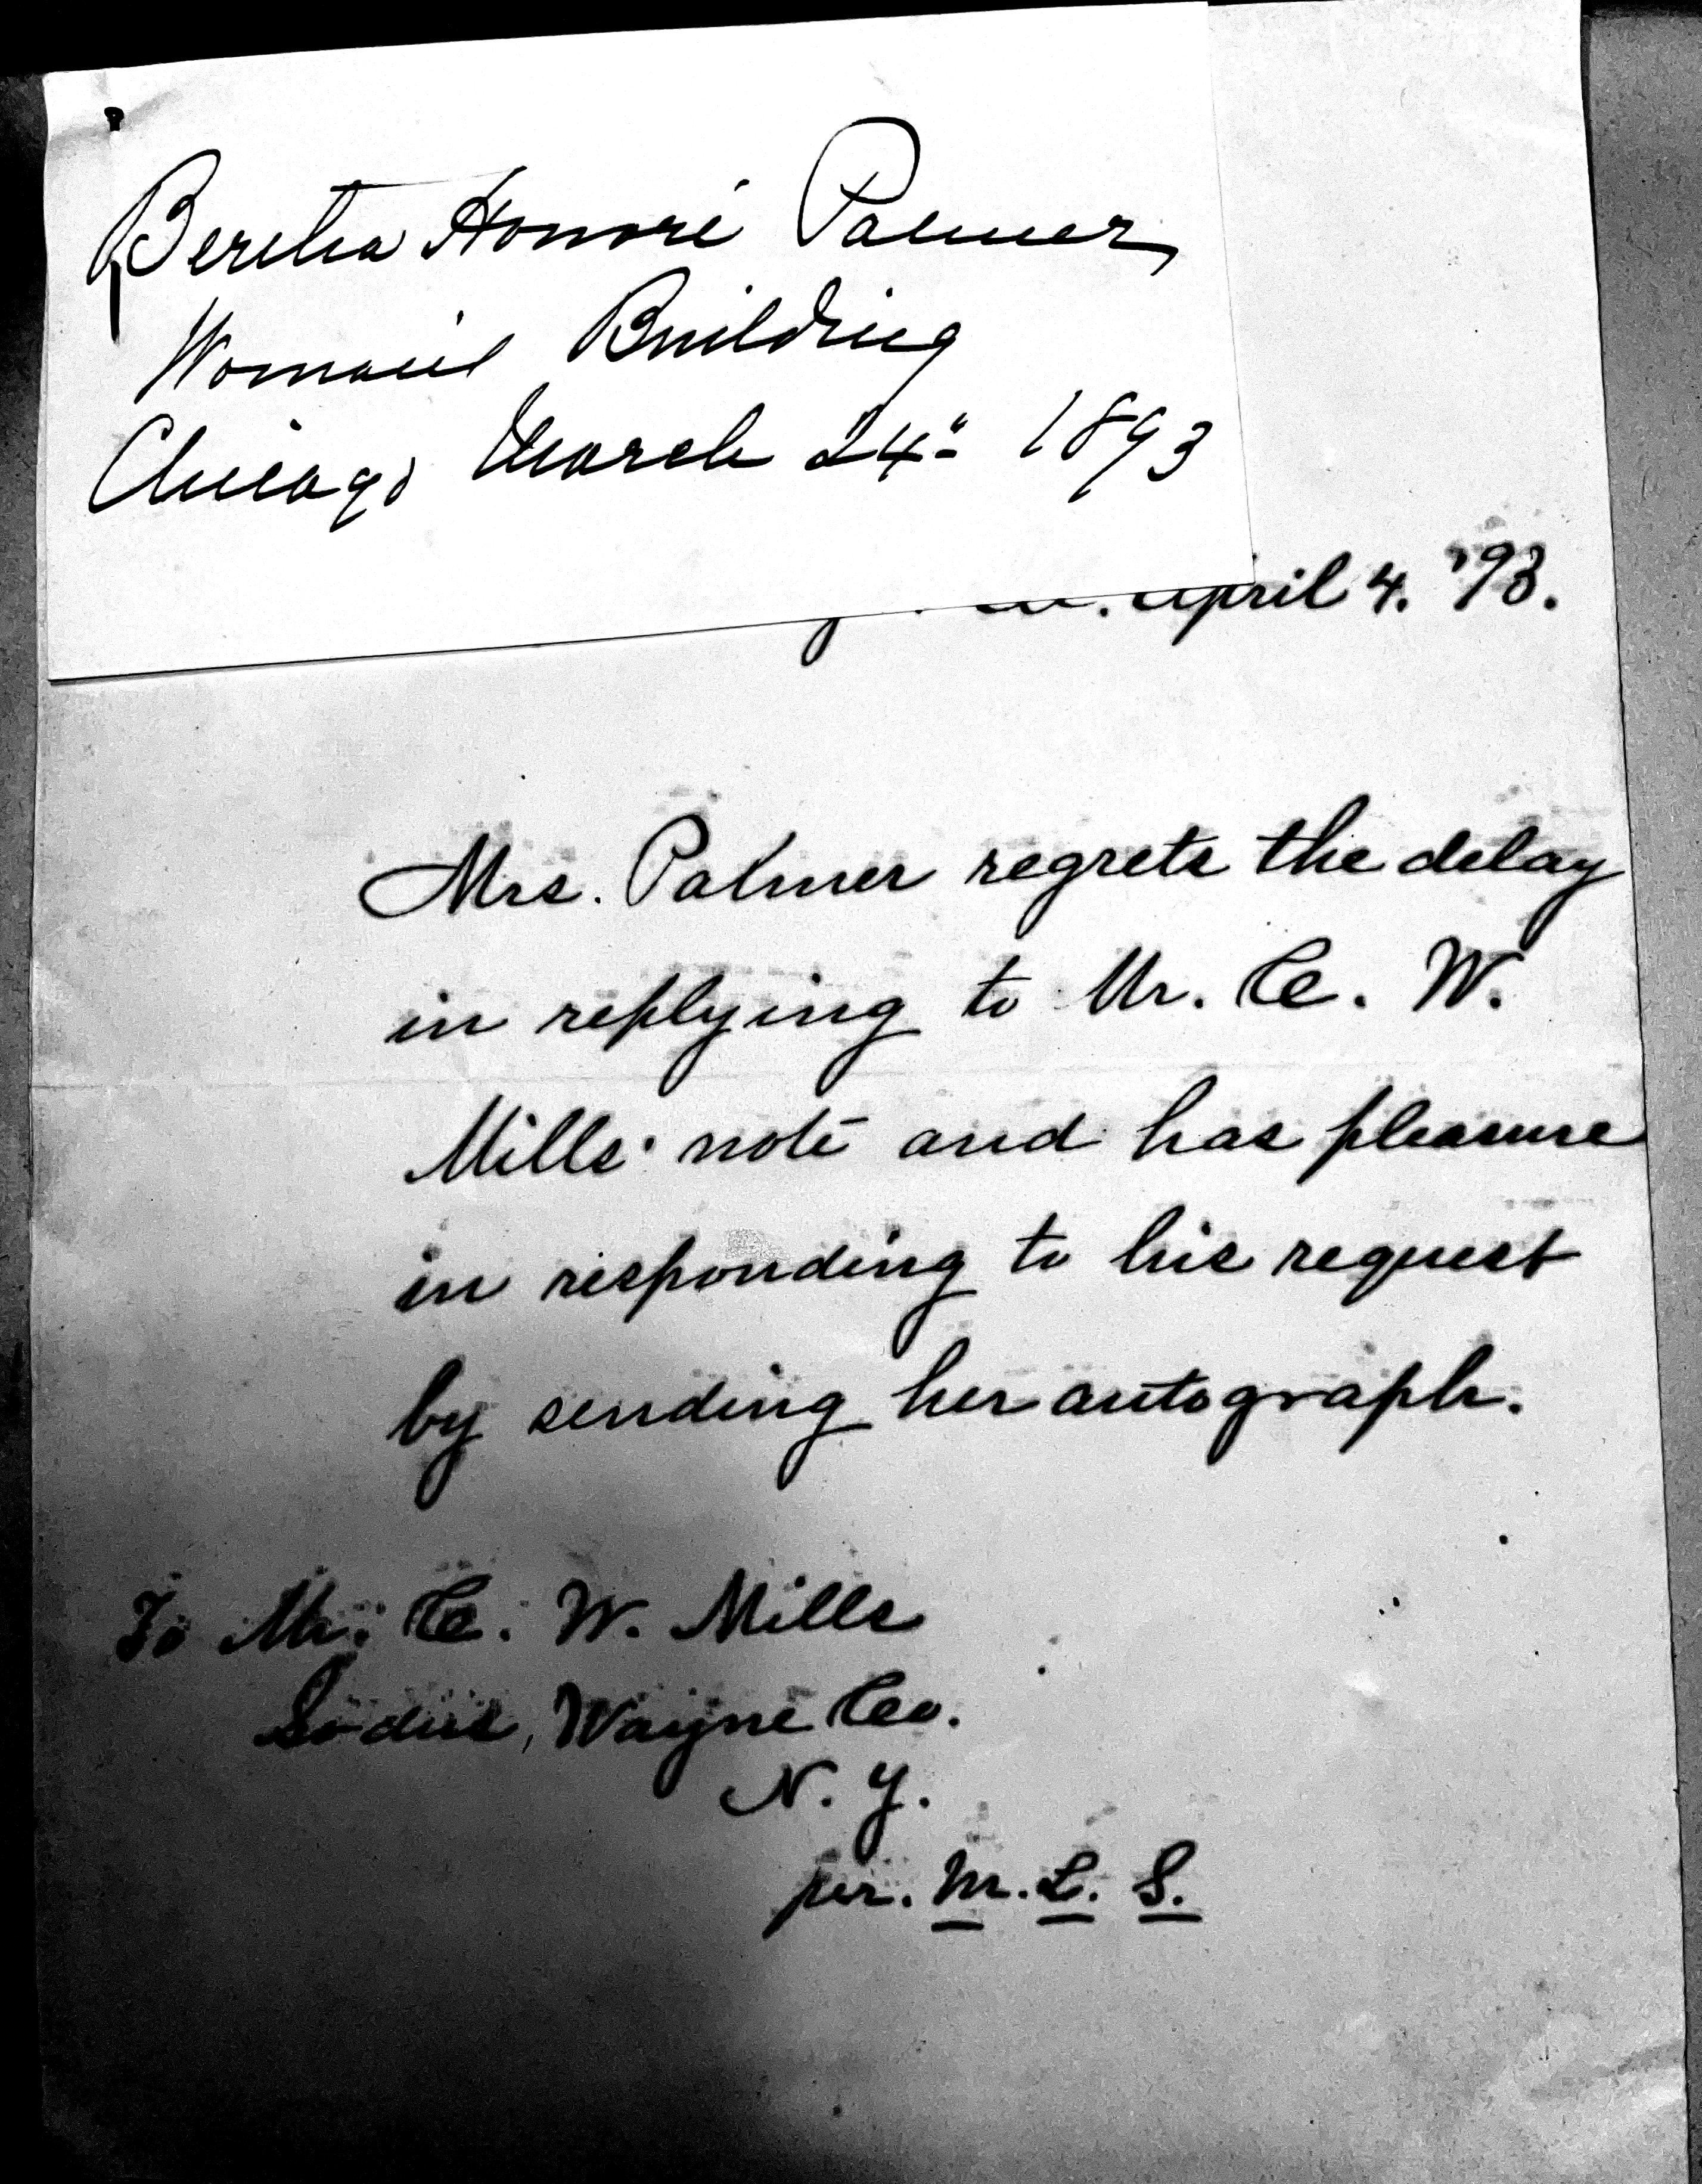 Bertha Honoré Palmer,
Woman's Building
Chicago March 24" 1893
April 4. '93.
Mrs. Palmer regrets the delay
in replying to Mr. C. W.
Mills' note and has pleasure
in responding to his request
by sending her autograph.
To Mr. C. W. Mills
Sodus, Wayne Co.
N. Y.
per. M. L. S.